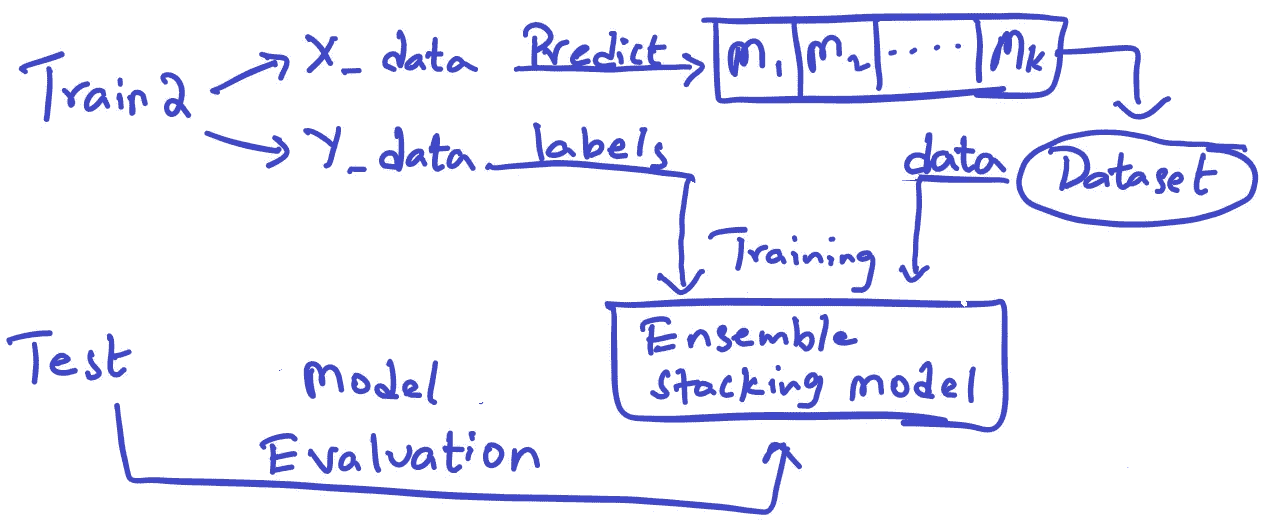 Train2
X_data
Predict
m1 m2 ..... mk
Y_data
labels
data
Dataset
Training
Ensemble
stacking model
Test
Model
Evaluation